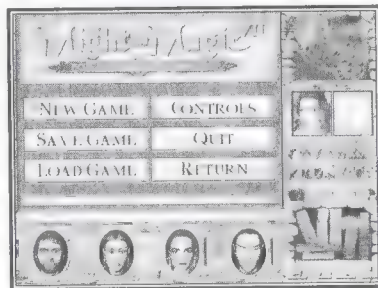 Might & Magic
NEW GAME CONTROLS
SAVE GAME QUIT
LOAD GAME RETURN